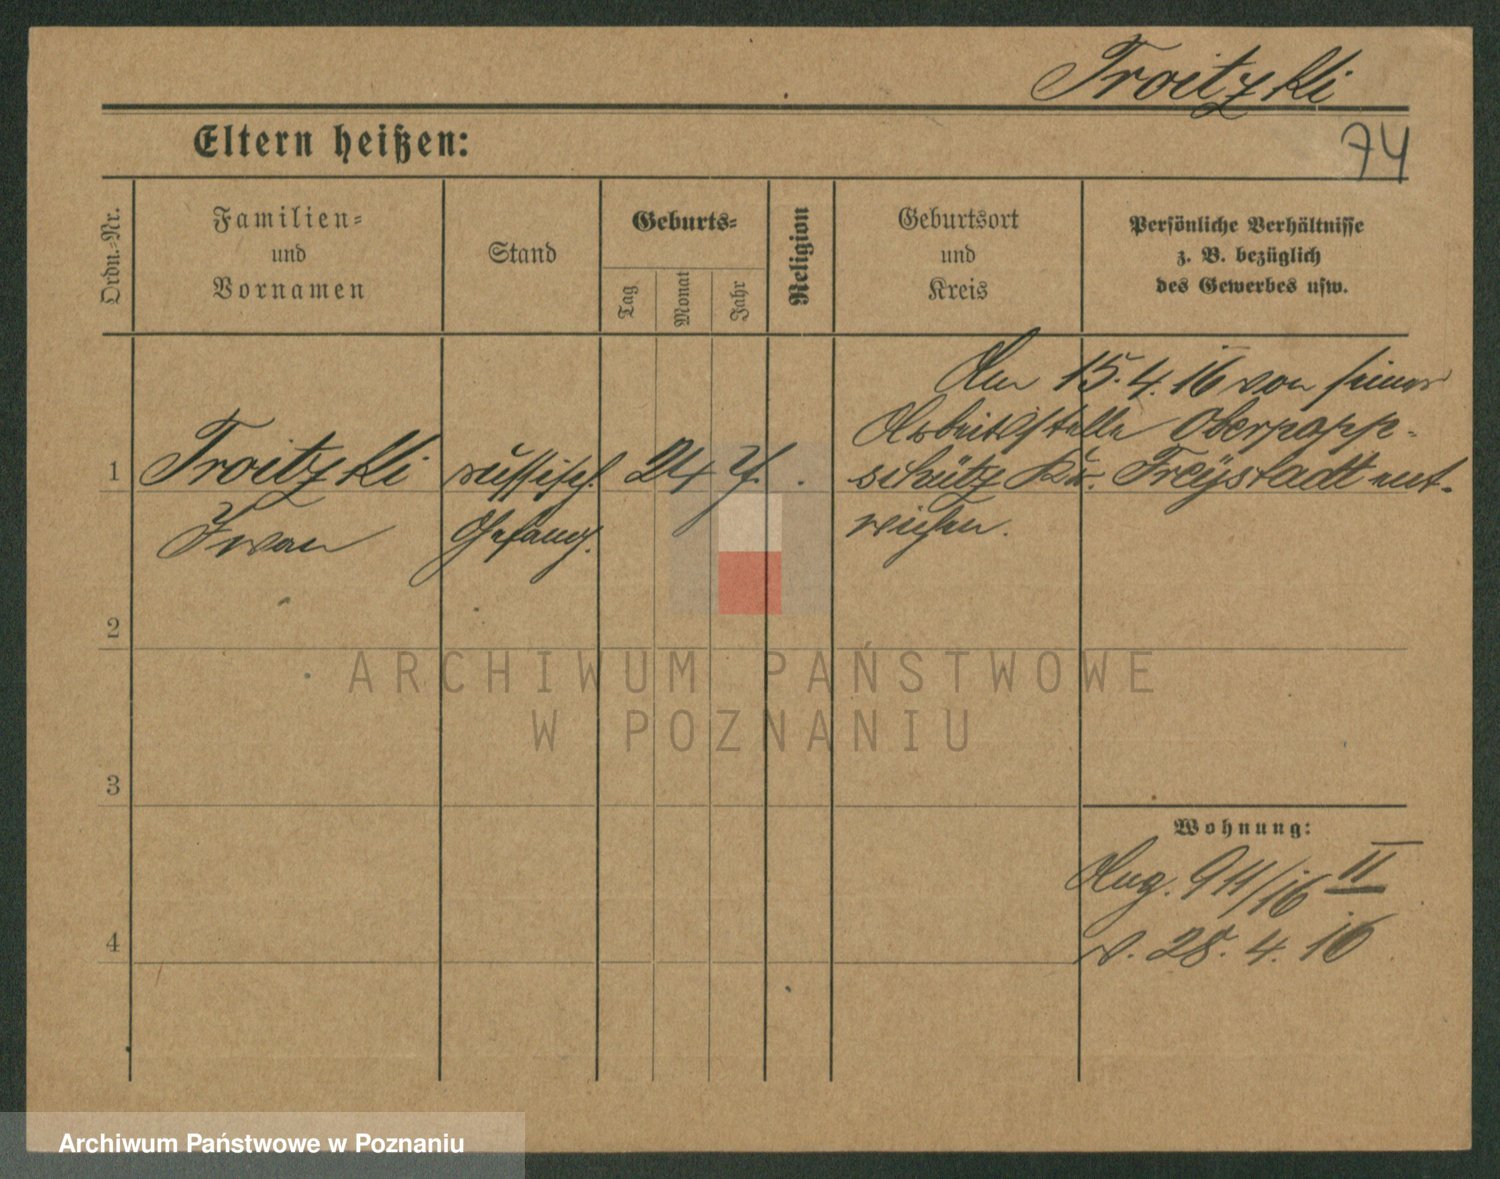 Troitzki
74
Eltern heißen:
Ordn.-Nr.
Familien-
und
Vornamen
Stand
Geburts-
Tag
Monat
Jahr
Religion
Geburtsort
und
Kreis
Persönliche Verhältnisse
z. B. bezüglich
des Gewerbes usw.
Am 15.4.16 von seiner
Arbeitsstelle Oberpopp-
schütz Kr. Freystadt ent-
wichen.
1
Troitzki
Iwan
russisch.
Gefang.
24 J.
2
3
4
Wohnung:
Aug. 911/16 II
v. 28. 4. 16
ARCHIWUM PAŃSTWOWE
W POZNANIU
Archiwum Państwowe w Poznaniu